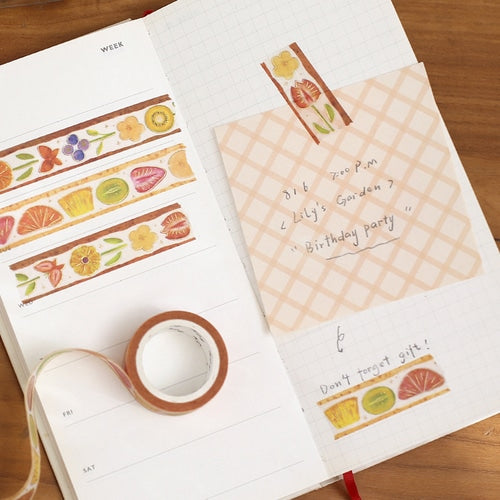 WEEK
WED
FRI
SAT
8/6 7:00 P.M
< Lily's Garden >
" Birthday party "
Don't forget gift!